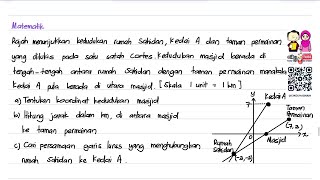 Matematik
Rajah menunjukkan kedudukan rumah Sahidan, kedai A dan taman permainan
yang dilukis pada satu satah Cartes. Kedudukan masjid berada di
tengah-tengah antara rumah Sahidan dengan taman permainan manakala
kedai A pula berada di utara masjid. [Skala 1 unit = 1 km]
a) Tentukan koordinat kedudukan masjid
b) Hitung jarak dalam km, di antara masjid
ke taman permainan
c) Cari persamaan garis lurus yang menghubungkan
rumah Sahidan ke kedai A.
y
7
Kedai A
Taman
Permainan
(7,3)
x
0
Masjid
Rumah
Sahidan